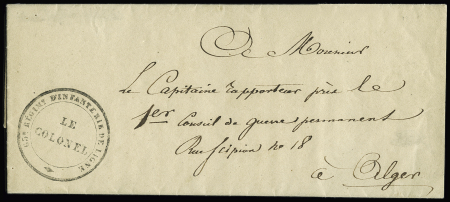 A Monsieur
Le Capitaine rapporteur près le
1er Conseil de guerre permanent
Rue Scipion no 18
à Alger
65e RÉGIMT D'INFANTERIE DE LIGNE
LE
COLONEL